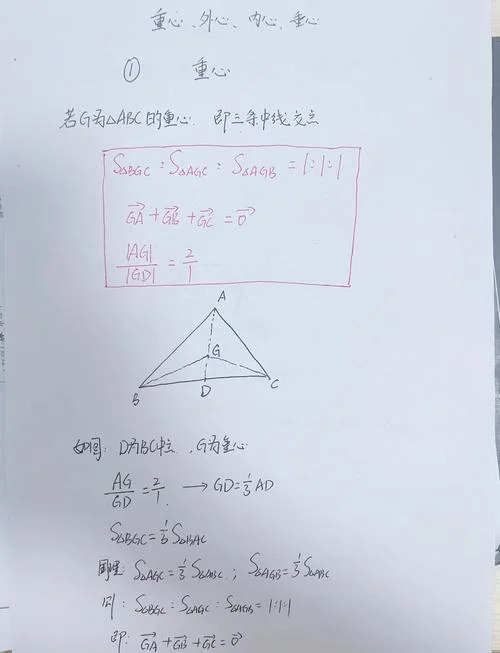 重心、外心、内心、垂心
① 重心
若G为△ABC的重心,即三条中线交点
S△BGC : S△AGC : S△AGB = 1:1:1
GA⃗ + GB⃗ + GC⃗ = 0⃗
|AG|/|GD| = 2/1
A
G
B D C
如图: D为BC中点, G为重心
AG/GD = 2/1 → GD = 1/3 AD
S△BGC = 1/3 S△BAC
同理: S△AGC = 1/3 S△ABC ; S△AGB = 1/3 S△ABC
则: S△BGC : S△AGC : S△AGB = 1:1:1
即: GA⃗ + GB⃗ + GC⃗ = 0⃗